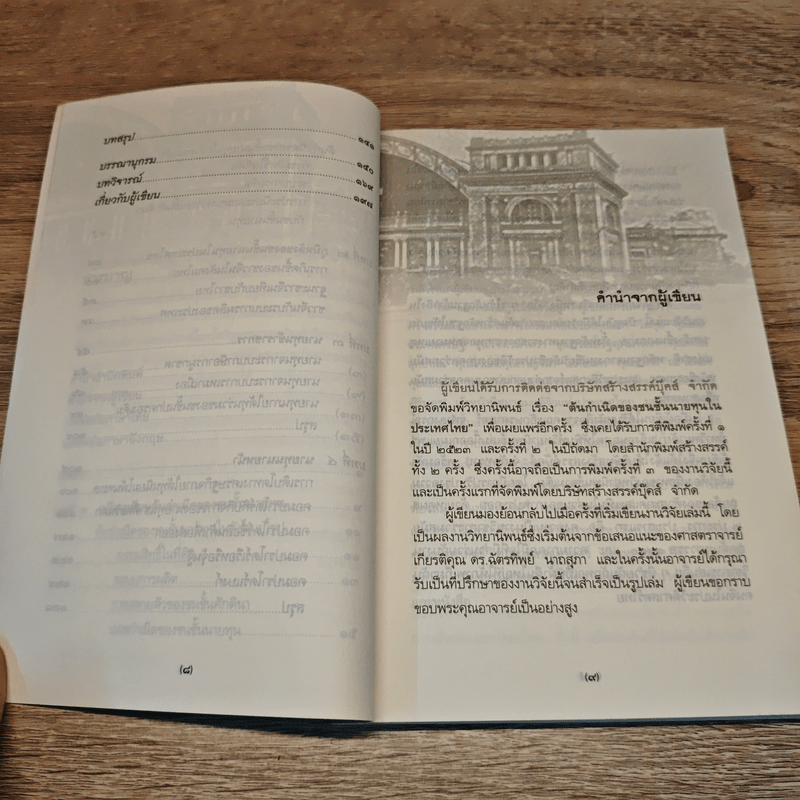 บทสรุป........................................๑๔๑
บรรณานุกรม........................................๑๕๐
บทวิจารณ์........................................๑๖๙
เกี่ยวกับผู้เขียน........................................๑๙๗
(๘)
คำนำจากผู้เขียน
ผู้เขียนได้รับการติดต่อจากบริษัทสร้างสรรค์บุ๊คส์ จำกัด
ขอจัดพิมพ์วิทยานิพนธ์ เรื่อง "ต้นกำเนิดของชนชั้นนายทุนใน
ประเทศไทย" เพื่อเผยแพร่อีกครั้ง ซึ่งเคยได้รับการตีพิมพ์ครั้งที่ ๑
ในปี ๒๕๒๓ และครั้งที่ ๒ ในปีถัดมา โดยสำนักพิมพ์สร้างสรรค์
ทั้ง ๒ ครั้ง ซึ่งครั้งนี้อาจถือเป็นการพิมพ์ครั้งที่ ๓ ของงานวิจัยนี้
และเป็นครั้งแรกที่จัดพิมพ์โดยบริษัทสร้างสรรค์บุ๊คส์ จำกัด
ผู้เขียนมองย้อนกลับไปเมื่อครั้งที่เริ่มเขียนงานวิจัยเล่มนี้ โดย
เป็นผลงานวิทยานิพนธ์ซึ่งเริ่มต้นจากข้อเสนอแนะของศาสตราจารย์
เกียรติคุณ ดร.ฉัตรทิพย์ นาถสุภา และในครั้งนั้นอาจารย์ได้กรุณา
รับเป็นที่ปรึกษาของงานวิจัยนี้จนสำเร็จเป็นรูปเล่ม ผู้เขียนขอกราบ
ขอบพระคุณอาจารย์เป็นอย่างสูง
(๙)